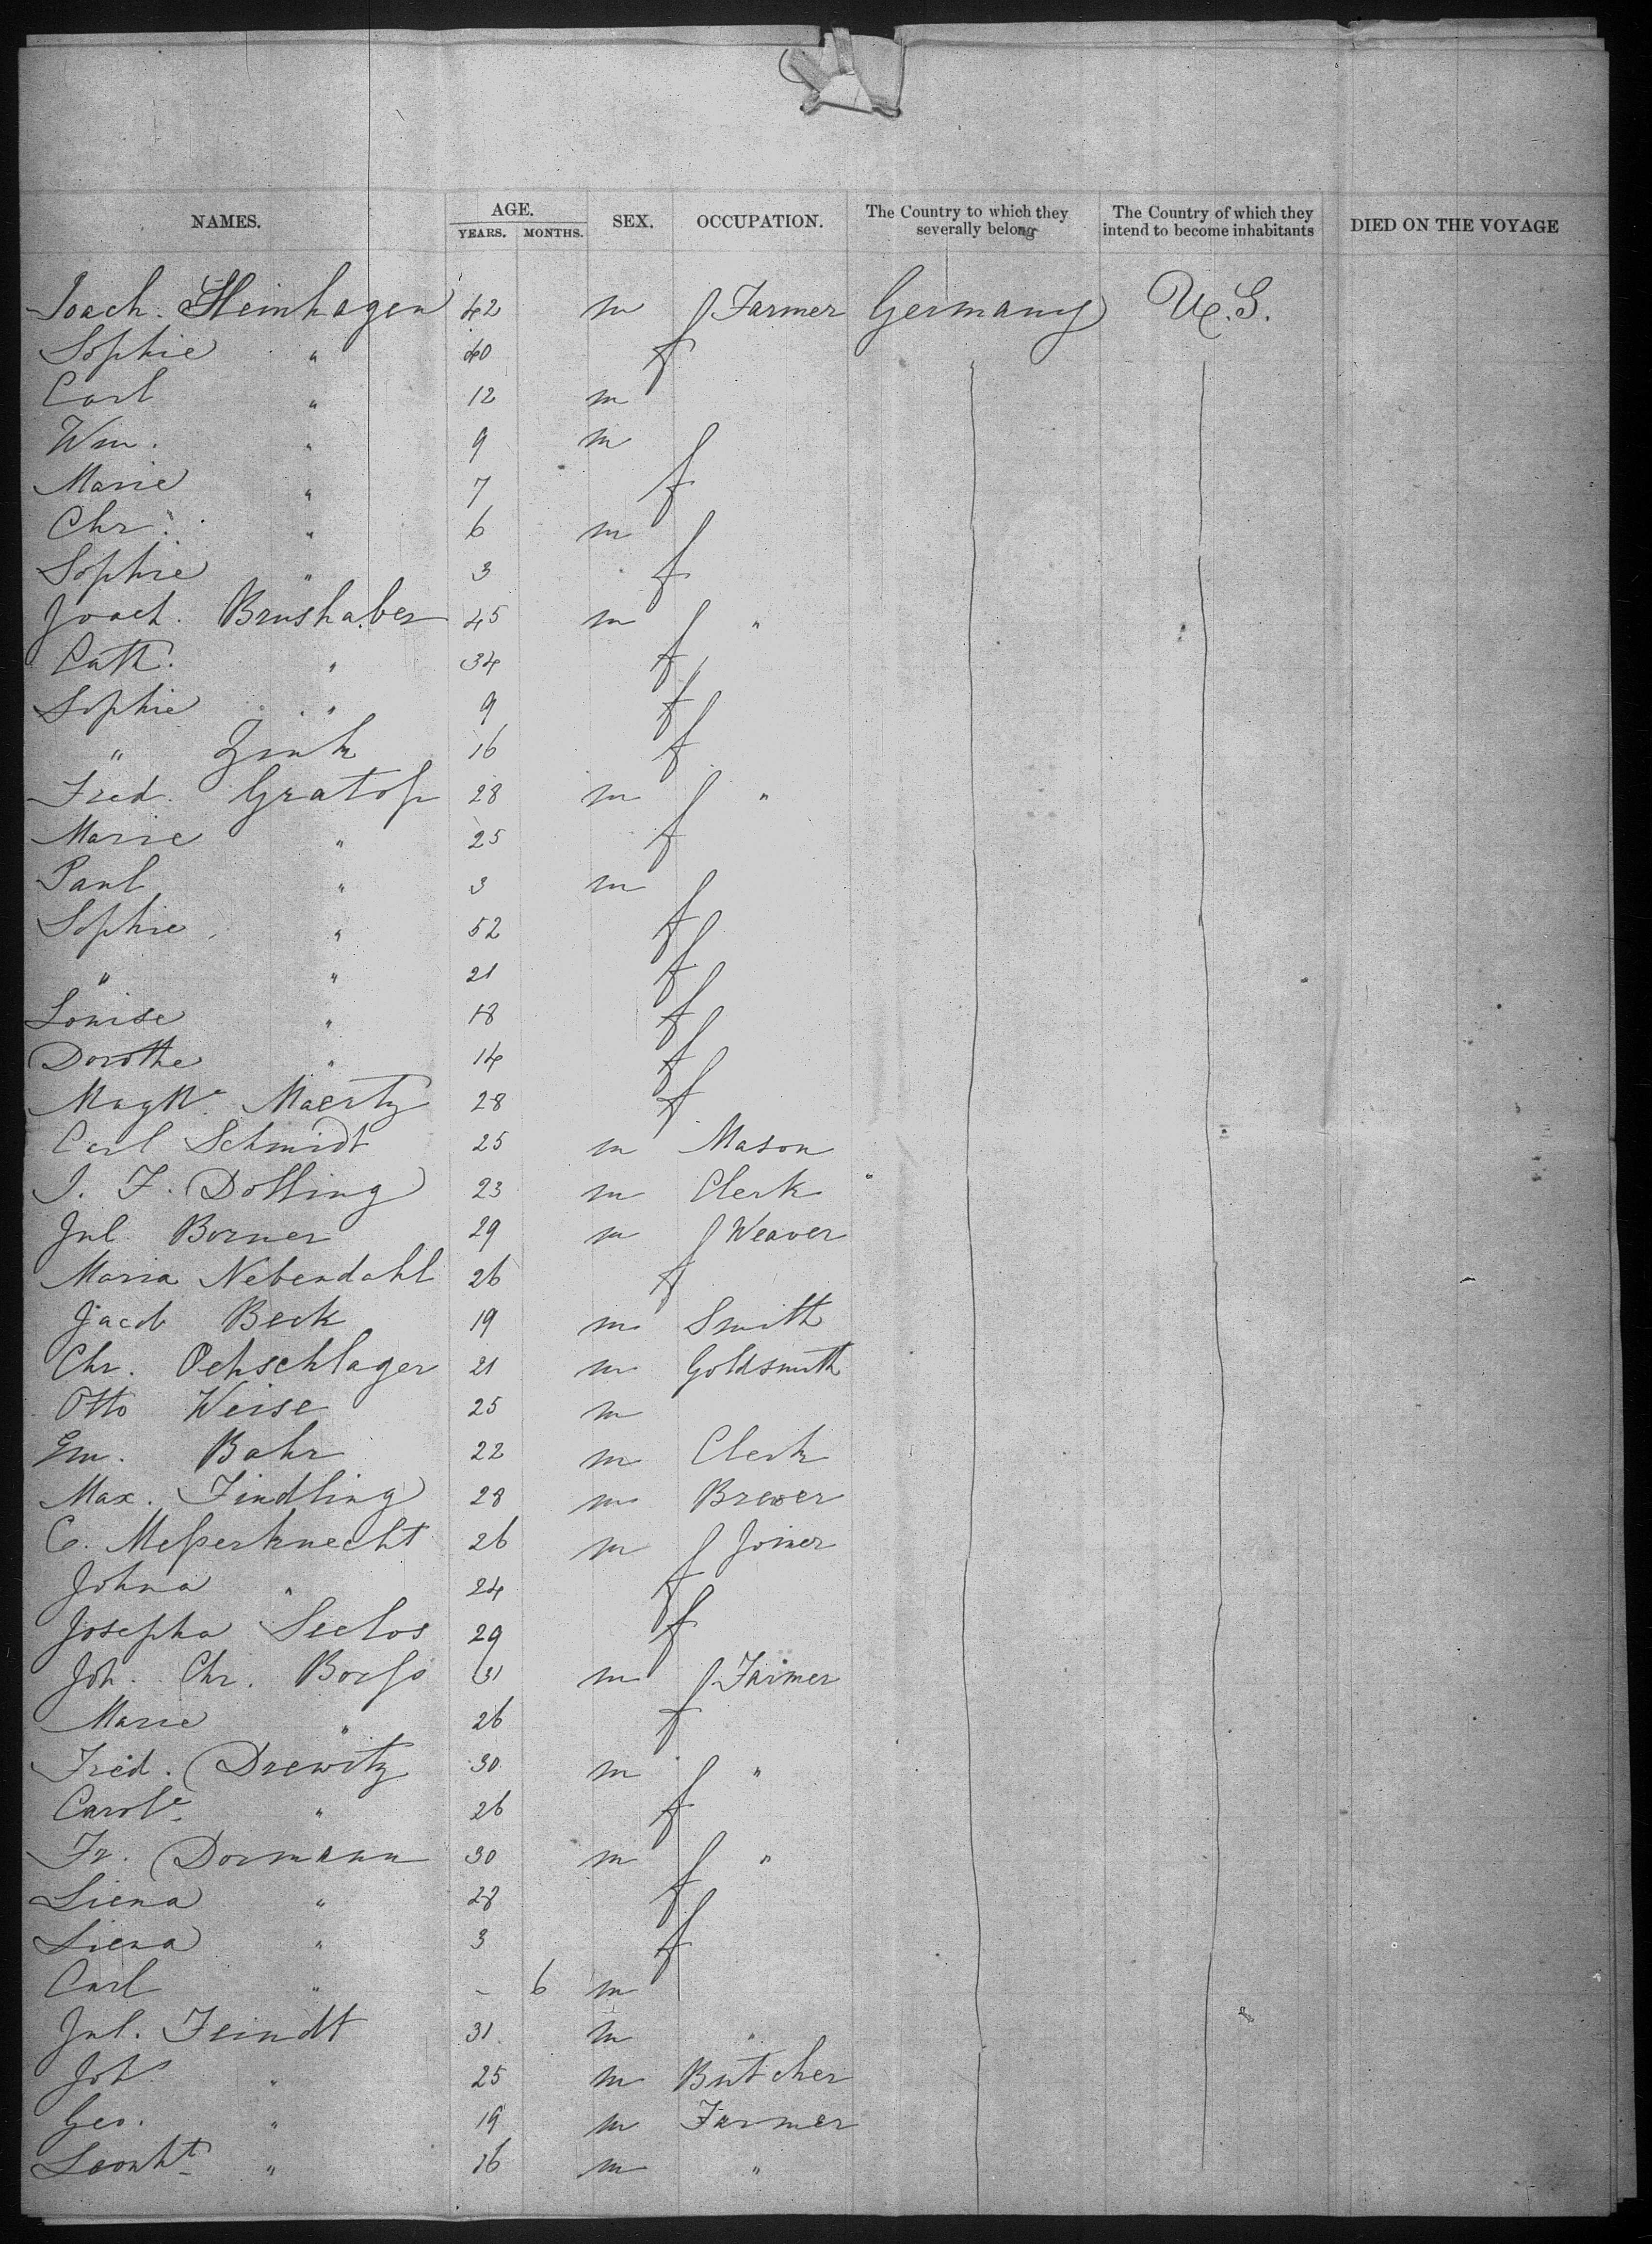 NAMES. AGE. YEARS. MONTHS. SEX. OCCUPATION. The Country to which they severally belong The Country of which they intend to become inhabitants DIED ON THE VOYAGE
Joach. Steinhagen 42 m Farmer Germany U.S.
Sophie " 40 f
Carl " 12 m
Wm. " 9 m
Marie " 7 f
Chr. " 6 m
Sophie " 3 f
Joach. Brushaber 45 m "
Cath. " 34 f
Sophie " 9 f
" Zink 16 f
Fred. Gratop 28 m "
Marie " 25 f
Paul " 3 m
Sophie " 52 f
" " 21 f
Louise " 18 f
Dorothe " 14 f
Maertz 28 f
Carl Schmidt 25 m Mason
J. F. Dolling 23 m Clerk "
Jul. Borner 29 m Weaver
Maria Nebendahl 26 f
Jacob Beck 19 m Smith
Chr. Oehschlager 21 m Goldsmith
Otto Weise 25 m
Em. Bahr 22 m Clerk
Max. Findling 28 m Brewer
C. Meßerknecht 26 m Joiner
Johna " 24 f
Josepha Seelos 29 f
Joh. Chr. 31 m Farmer
Marie " 26 f
Fried. Drewitz 30 m "
Carole " 26 f
Fr. Dormann 30 m "
Liena " 28 f
Liena " 3 f
Carl " - 6 m
Jul. Feindt 31 m "
Johs " 25 m Butcher
Geo. " 19 m Farmer
Leonht " 16 m "